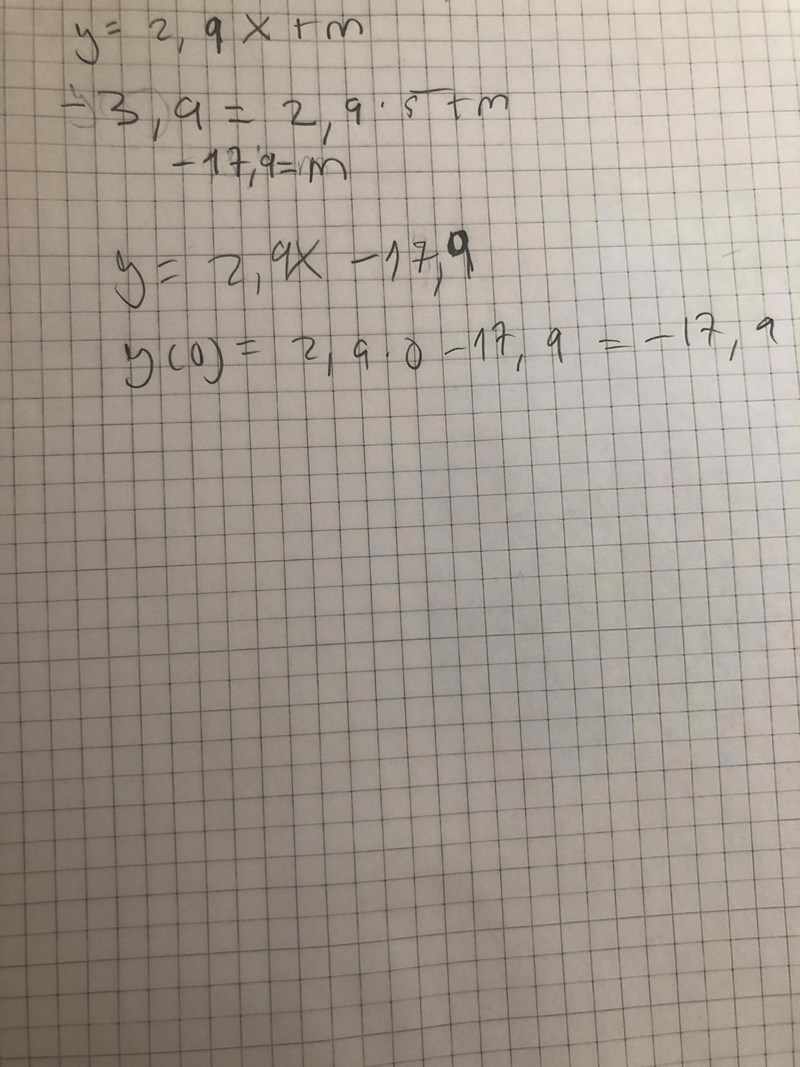 y = 2,9x + m
-3,9 = 2,9 · 5 + m
-17,9 = m
y = 2,9x - 17,9
y(0) = 2,9 · 0 - 17,9 = -17,9